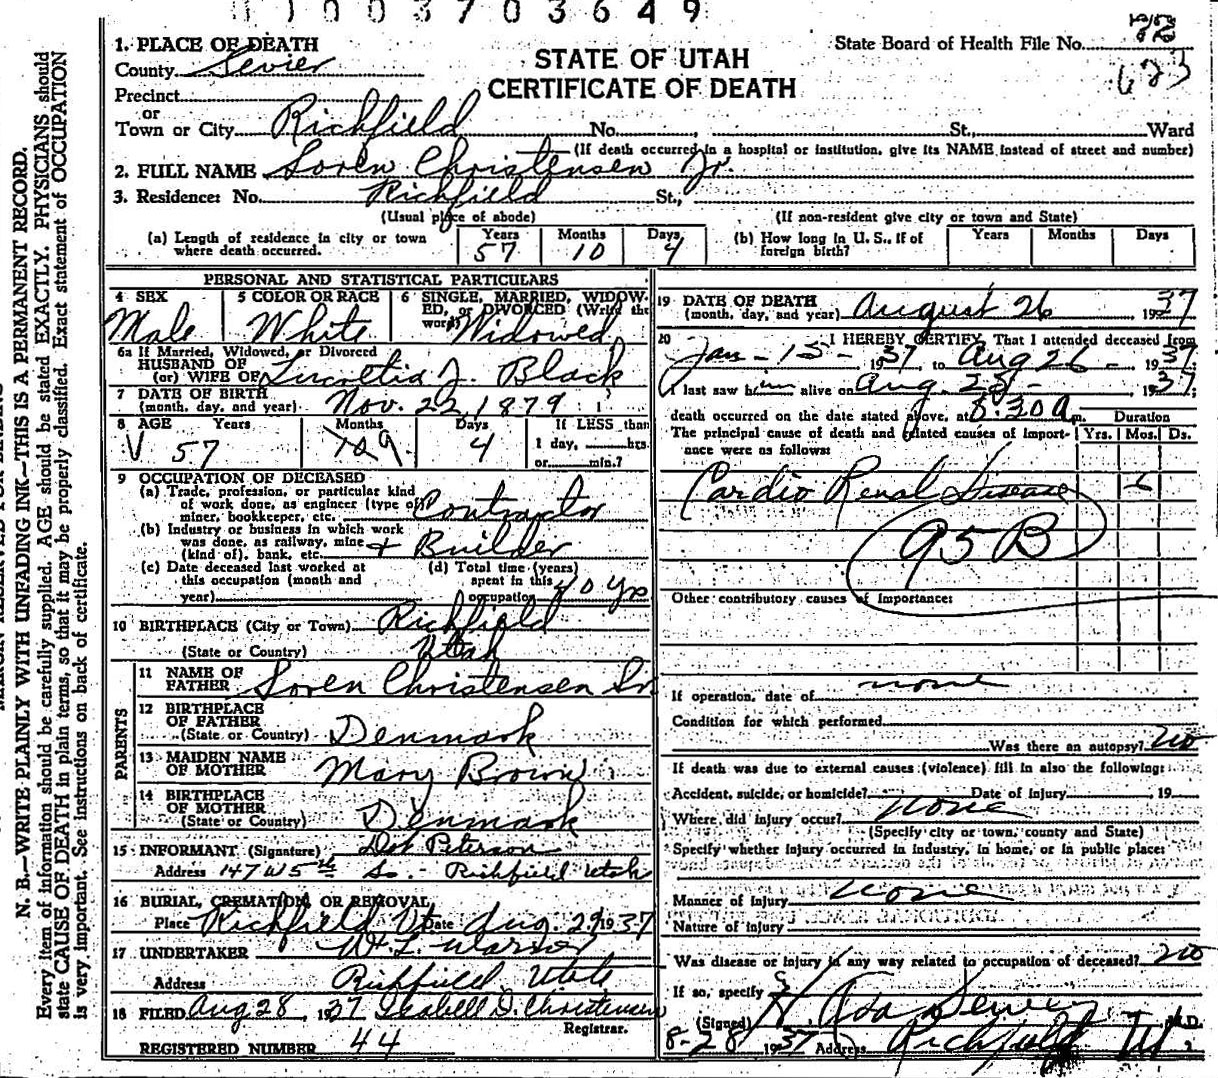 11003703649
1. PLACE OF DEATH
County Sevier
Precinct
or
Town or City Richfield No. , St., Ward
(If death occurred in a hospital or institution, give its NAME instead of street and number)
STATE OF UTAH
CERTIFICATE OF DEATH
State Board of Health File No. 72
623
2. FULL NAME Soren Christensen Jr.
3. Residence: No. Richfield St.,
(Usual place of abode)
(If non-resident give city or town and State)
(a) Length of residence in city or town where death occurred. Years 57 Months 10 Days 4
(b) How long in U. S., if of foreign birth? Years Months Days
PERSONAL AND STATISTICAL PARTICULARS
4 SEX Male
5 COLOR OR RACE White
6 SINGLE, MARRIED, WIDOWED, or DIVORCED (Write the word) Widowed
6a If Married, Widowed, or Divorced
HUSBAND OF
(or) WIFE OF Lucretia J. Black
7 DATE OF BIRTH
(month, day, and year) Nov. 22, 1879
8 AGE Years 57 Months 10 9 Days 4 If LESS than
1 day, hrs.
or min.?
9 OCCUPATION OF DECEASED
(a) Trade, profession, or particular kind
of work done, as engineer (type of) Contractor
miner, bookkeeper, etc.
(b) Industry or business in which work
was done, as railway, mine + Builder
(kind of), bank, etc.
(c) Date deceased last worked at
this occupation (month and
year)
(d) Total time (years)
spent in this
occupation 40 yrs
10 BIRTHPLACE (City or Town) Richfield
(State or Country) Utah
PARENTS
11 NAME OF
FATHER Soren Christensen Sr
12 BIRTHPLACE
OF FATHER
(State or Country) Denmark
13 MAIDEN NAME
OF MOTHER Mary Brown
14 BIRTHPLACE
OF MOTHER
(State or Country) Denmark
15 INFORMANT (Signature) Dot Peterson
Address 147 W 5th So. - Richfield Utah
16 BURIAL, CREMATION, OR REMOVAL
Place Richfield Ut Date Aug. 29 1937
17 UNDERTAKER
Address Richfield Utah
18 FILED Aug 28, 1937 Isabell D. Christensen
Registrar.
REGISTERED NUMBER 44
19 DATE OF DEATH
(month, day, and year) August 26 1937
20 I HEREBY CERTIFY, That I attended deceased from
Jan - 15 - 1937 to Aug 26 - 1937
I last saw him alive on Aug. 25 - 1937;
death occurred on the date stated above, at 8:30 a m. Duration
The principal cause of death and related causes of importance were as follows: Yrs. Mos. Ds.
Cardio Renal Disease 6
95B
Other contributory causes of importance:
If operation, date of none
Condition for which performed
Was there an autopsy? no
If death was due to external causes (violence) fill in also the following:
Accident, suicide, or homicide? Date of injury , 19
Where did injury occur? none
(Specify city or town, county and State)
Specify whether injury occurred in industry, in home, or in public place:
Manner of injury none
Nature of injury
Was disease or injury in any way related to occupation of deceased? no
If so, specify
(Signed) M.D.
8-28 1937 Address Richfield Ut
N. B.—WRITE PLAINLY WITH UNFADING INK—THIS IS A PERMANENT RECORD.
Every item of information should be carefully supplied. AGE should be stated EXACTLY. PHYSICIANS should
state CAUSE OF DEATH in plain terms, so that it may be properly classified. Exact statement of OCCUPATION
is very important. See instructions on back of certificate.